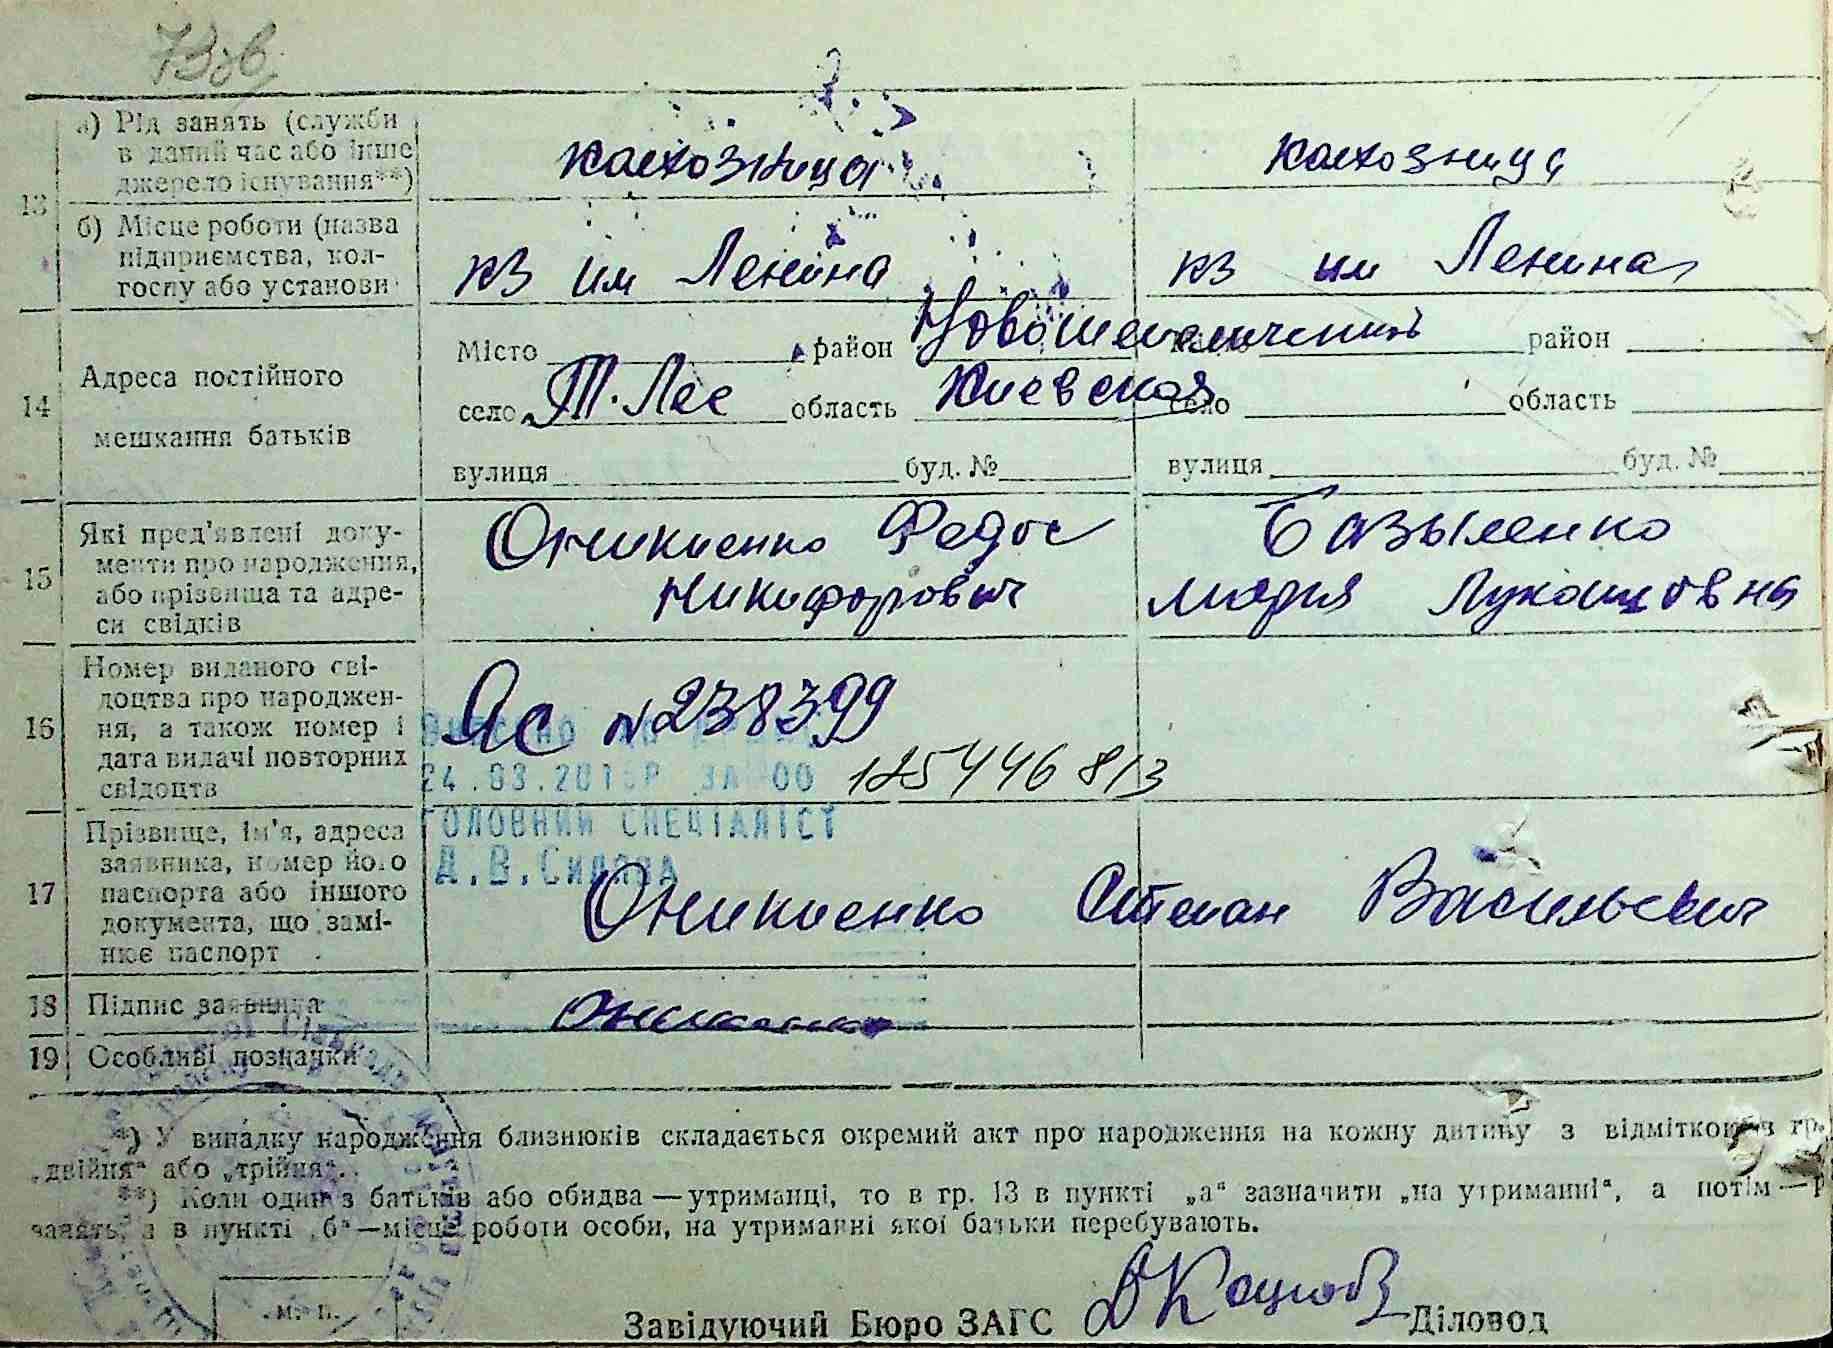 13
а) Рід занять (служби
в даний час або інше
джерело існування**)
колхозница
колхозница
б) Місце роботи (назва
підприємства, кол-
госпу або установи
кз им Ленина
кз им Ленина
14
Адреса постійного
мешкання батьків
Місто район
район
село Т. Лес область Киевская
село область
вулиця буд. №
вулиця буд. №
15
Які пред'явлені доку-
менти про народження,
або прізвища та адре-
си свідків
Оникиенко Федос
Никифорович
Базыленко
Мария Лукашовна
16
Номер виданого сві-
доцтва про народжен-
ня, а також номер і
дата видачі повторних
свідоцтв
ЯС №238399
24.03.201 Р ЗА 00 125446813
ГОЛОВНИЙ СПЕЦІАЛІСТ
Д.В.
17
Прізвище, ім'я, адреса
заявника, номер його
паспорта або іншого
документа, що замі-
нює паспорт
Оникиенко Степан Васильевич
18 Підпис заявника
19 Особливі позначки
*) У випадку народження близнюків складається окремий акт про народження на кожну дитину з відміткою в гр.
„двійня“ або „трійня“.
**) Коли один з батьків або обидва — утриманці, то в гр. 13 в пункті „а“ зазначити „на утриманні“, а потім —
занять, а в пункті „б“ — місце роботи особи, на утриманні якої батьки перебувають.
М. П.
Завідуючий Бюро ЗАГС
Діловод